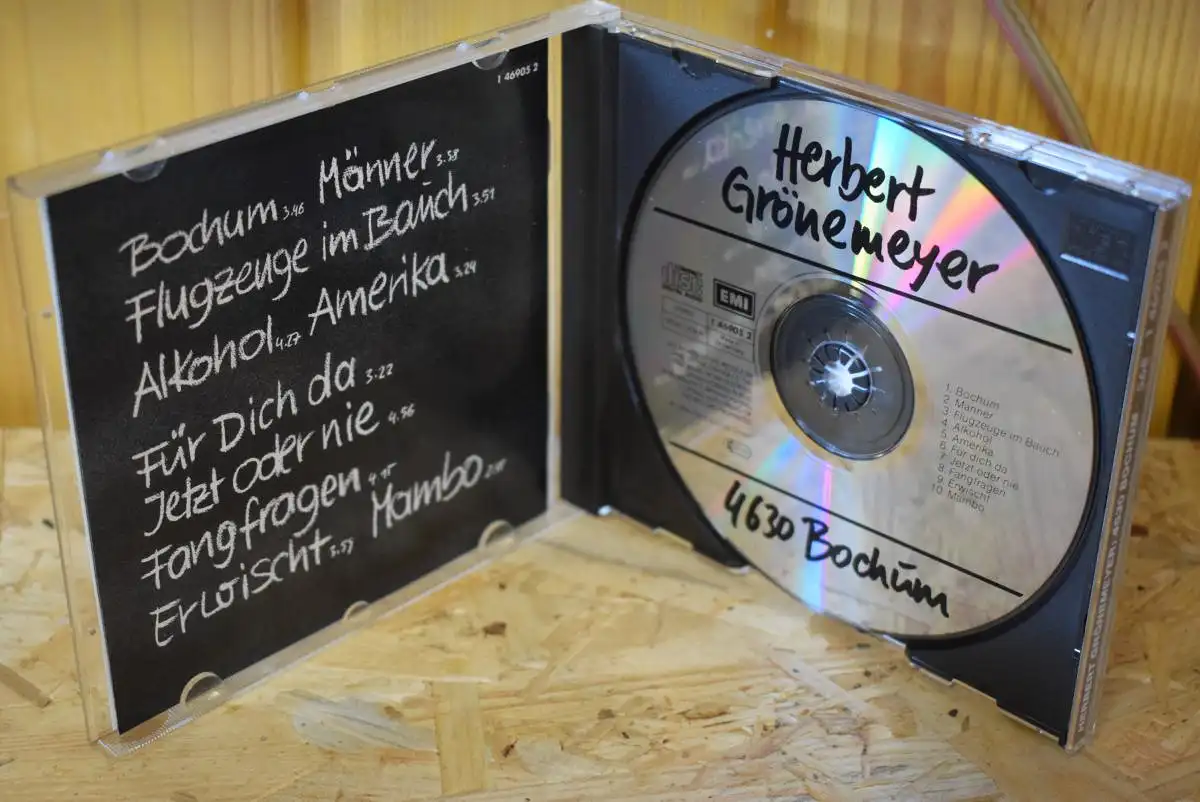 1 46905 2
Bochum 3.46 Männer 3:58
Flugzeuge im Bauch 3.51
Alkohol 4.27 Amerika 3.24
Für Dich da 3:22
Jetzt oder nie 4.56
Fangfragen 4.15
Erwischt 3.57 Mambo
Herbert
Grönemeyer
EMI
1 46905 2
1. Bochum
2 Männer
3 Flugzeuge im Bauch
4 Alkohol
5 Amerika
6 Für dich da
7 Jetzt oder nie
8 Fangfragen
9 Erwischt
10 Mambo
4630 Bochum
HERBERT GRÖNEMEYER: 4630 BOCHUM